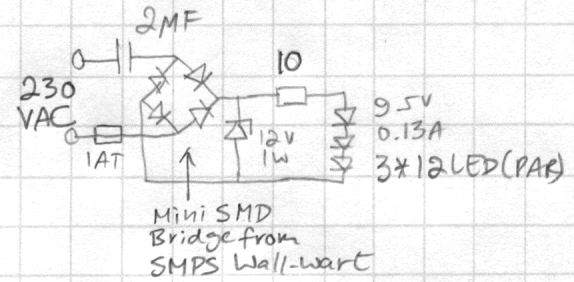 2MF
10
230
VAC
1AT
12V
1W
9.5V
0.13A
3*12LED(PAR)
Mini SMD
Bridge from
SMPS Wall-wart